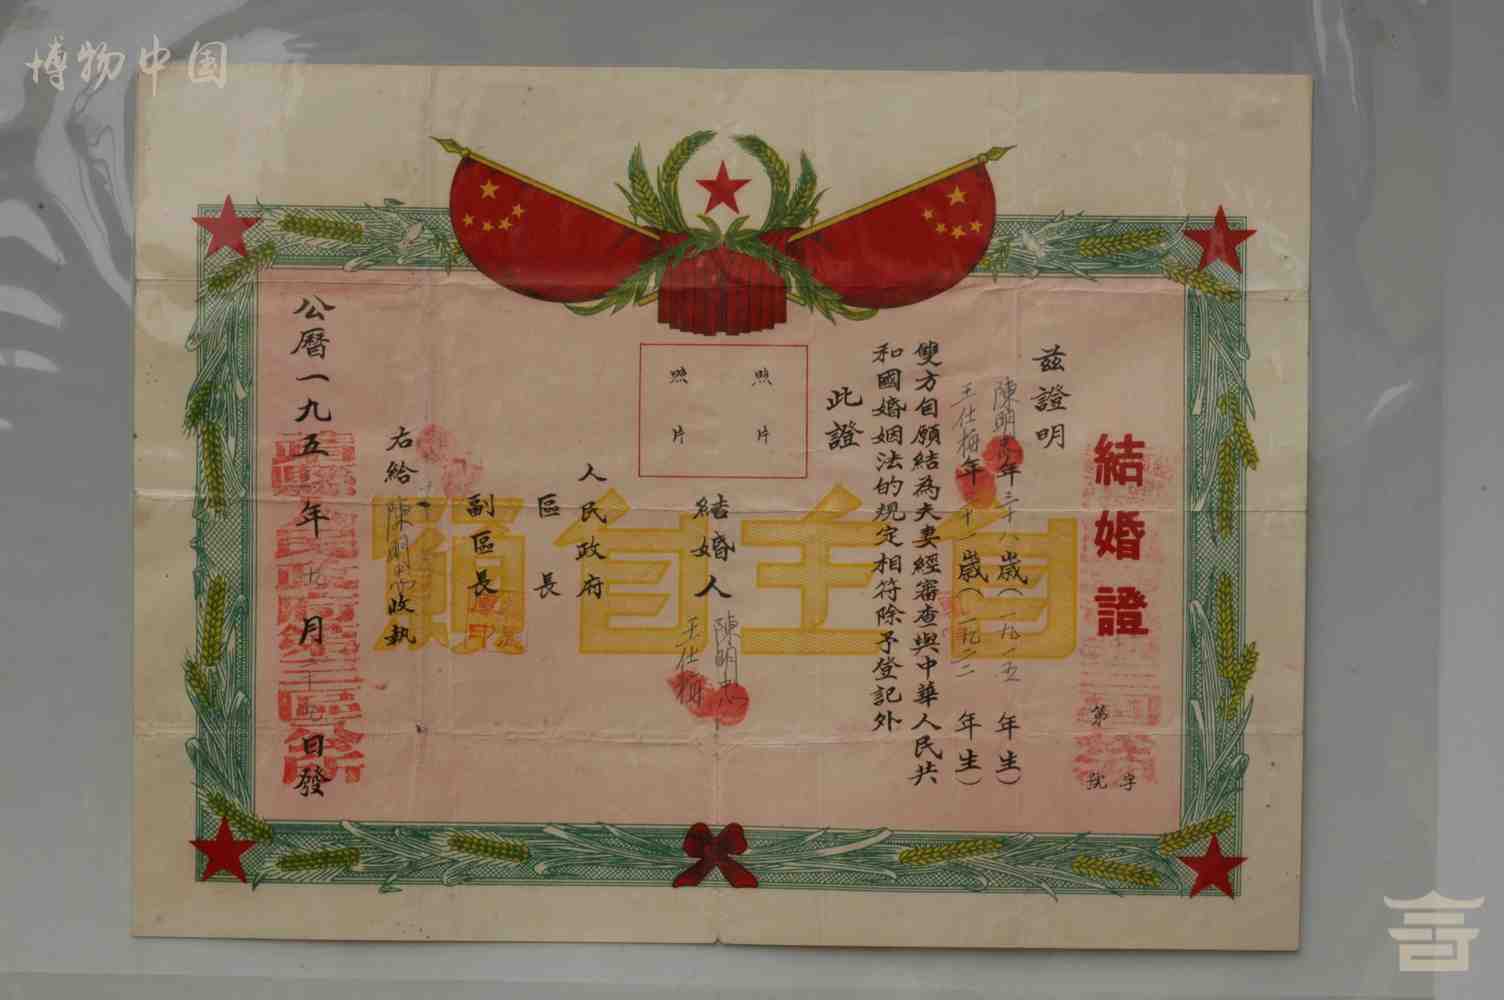 博物中国
結婚證
第
字
號
茲證明
陳明忠年三十八歲(一九一五年生)
王仕梅年三十一歲(一九二二年生)
雙方自願結為夫妻經審查與中華人民共
和國婚姻法的規定相符除予登記外
此證
照片
照片
自主自願
結婚人 陳明忠
王仕梅
人民政府
區長
副區長
右給陳明忠收執
公曆一九五年九月二十九日發